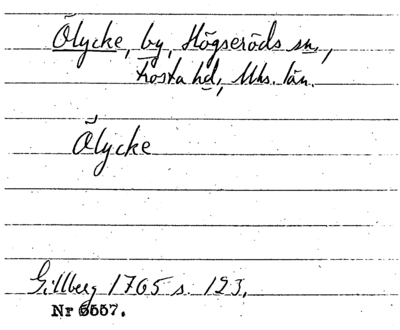 Ölycke, by, Högseröds sn,
Frosta hd, Mhs. län.
Ölycke
Gillberg 1765 s. 123.
Nr 6557.